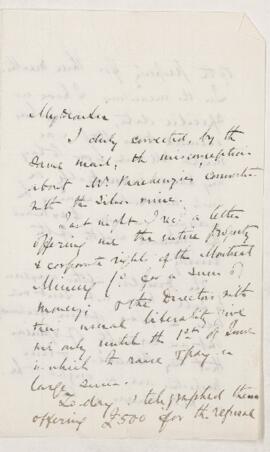 My dear
I duly corrected, by the
same mail, the misconception
about Mr. connection
with the Silver mine.
Last night I rec. a letter
offering me the entire property
& corporate rights of the Montreal
Mining Co. for a sum of
money; & the Directors with
their usual liberality give
me only until the 1st of June
in which to raise & pay a
large sum.
To-day I telegraphed them
offering £500 for the refusal